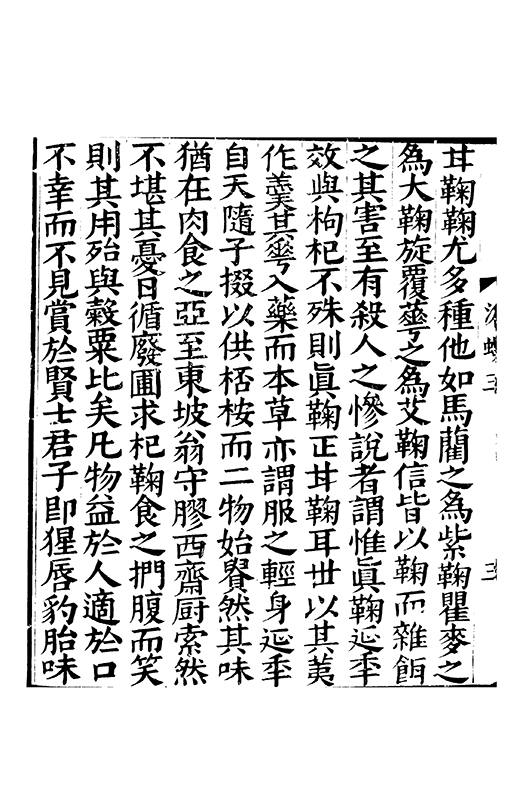 苷鞠鞠尤多種他如馬藺之為紫鞠瞿麥之
為大鞠旋覆蕚之為艾鞠信皆以鞠而雜餌
之其害至有殺人之慘說者謂惟眞鞠延秊
效與枸杞不殊則眞鞠正苷鞠耳世以其荑
作羹其蕚入藥而本草亦謂服之輕身延秊
自天隨子掇以供桮桉而二物始賮然其味
猶在肉食之亞至東坡翁守膠西齋厨索然
不堪其憂日循廢圃求杞鞠食之捫腹而笑
則其用殆與穀粟比矣凡物益於人適於口
不幸而不見賞於賢士君子卽猩唇豹胎味